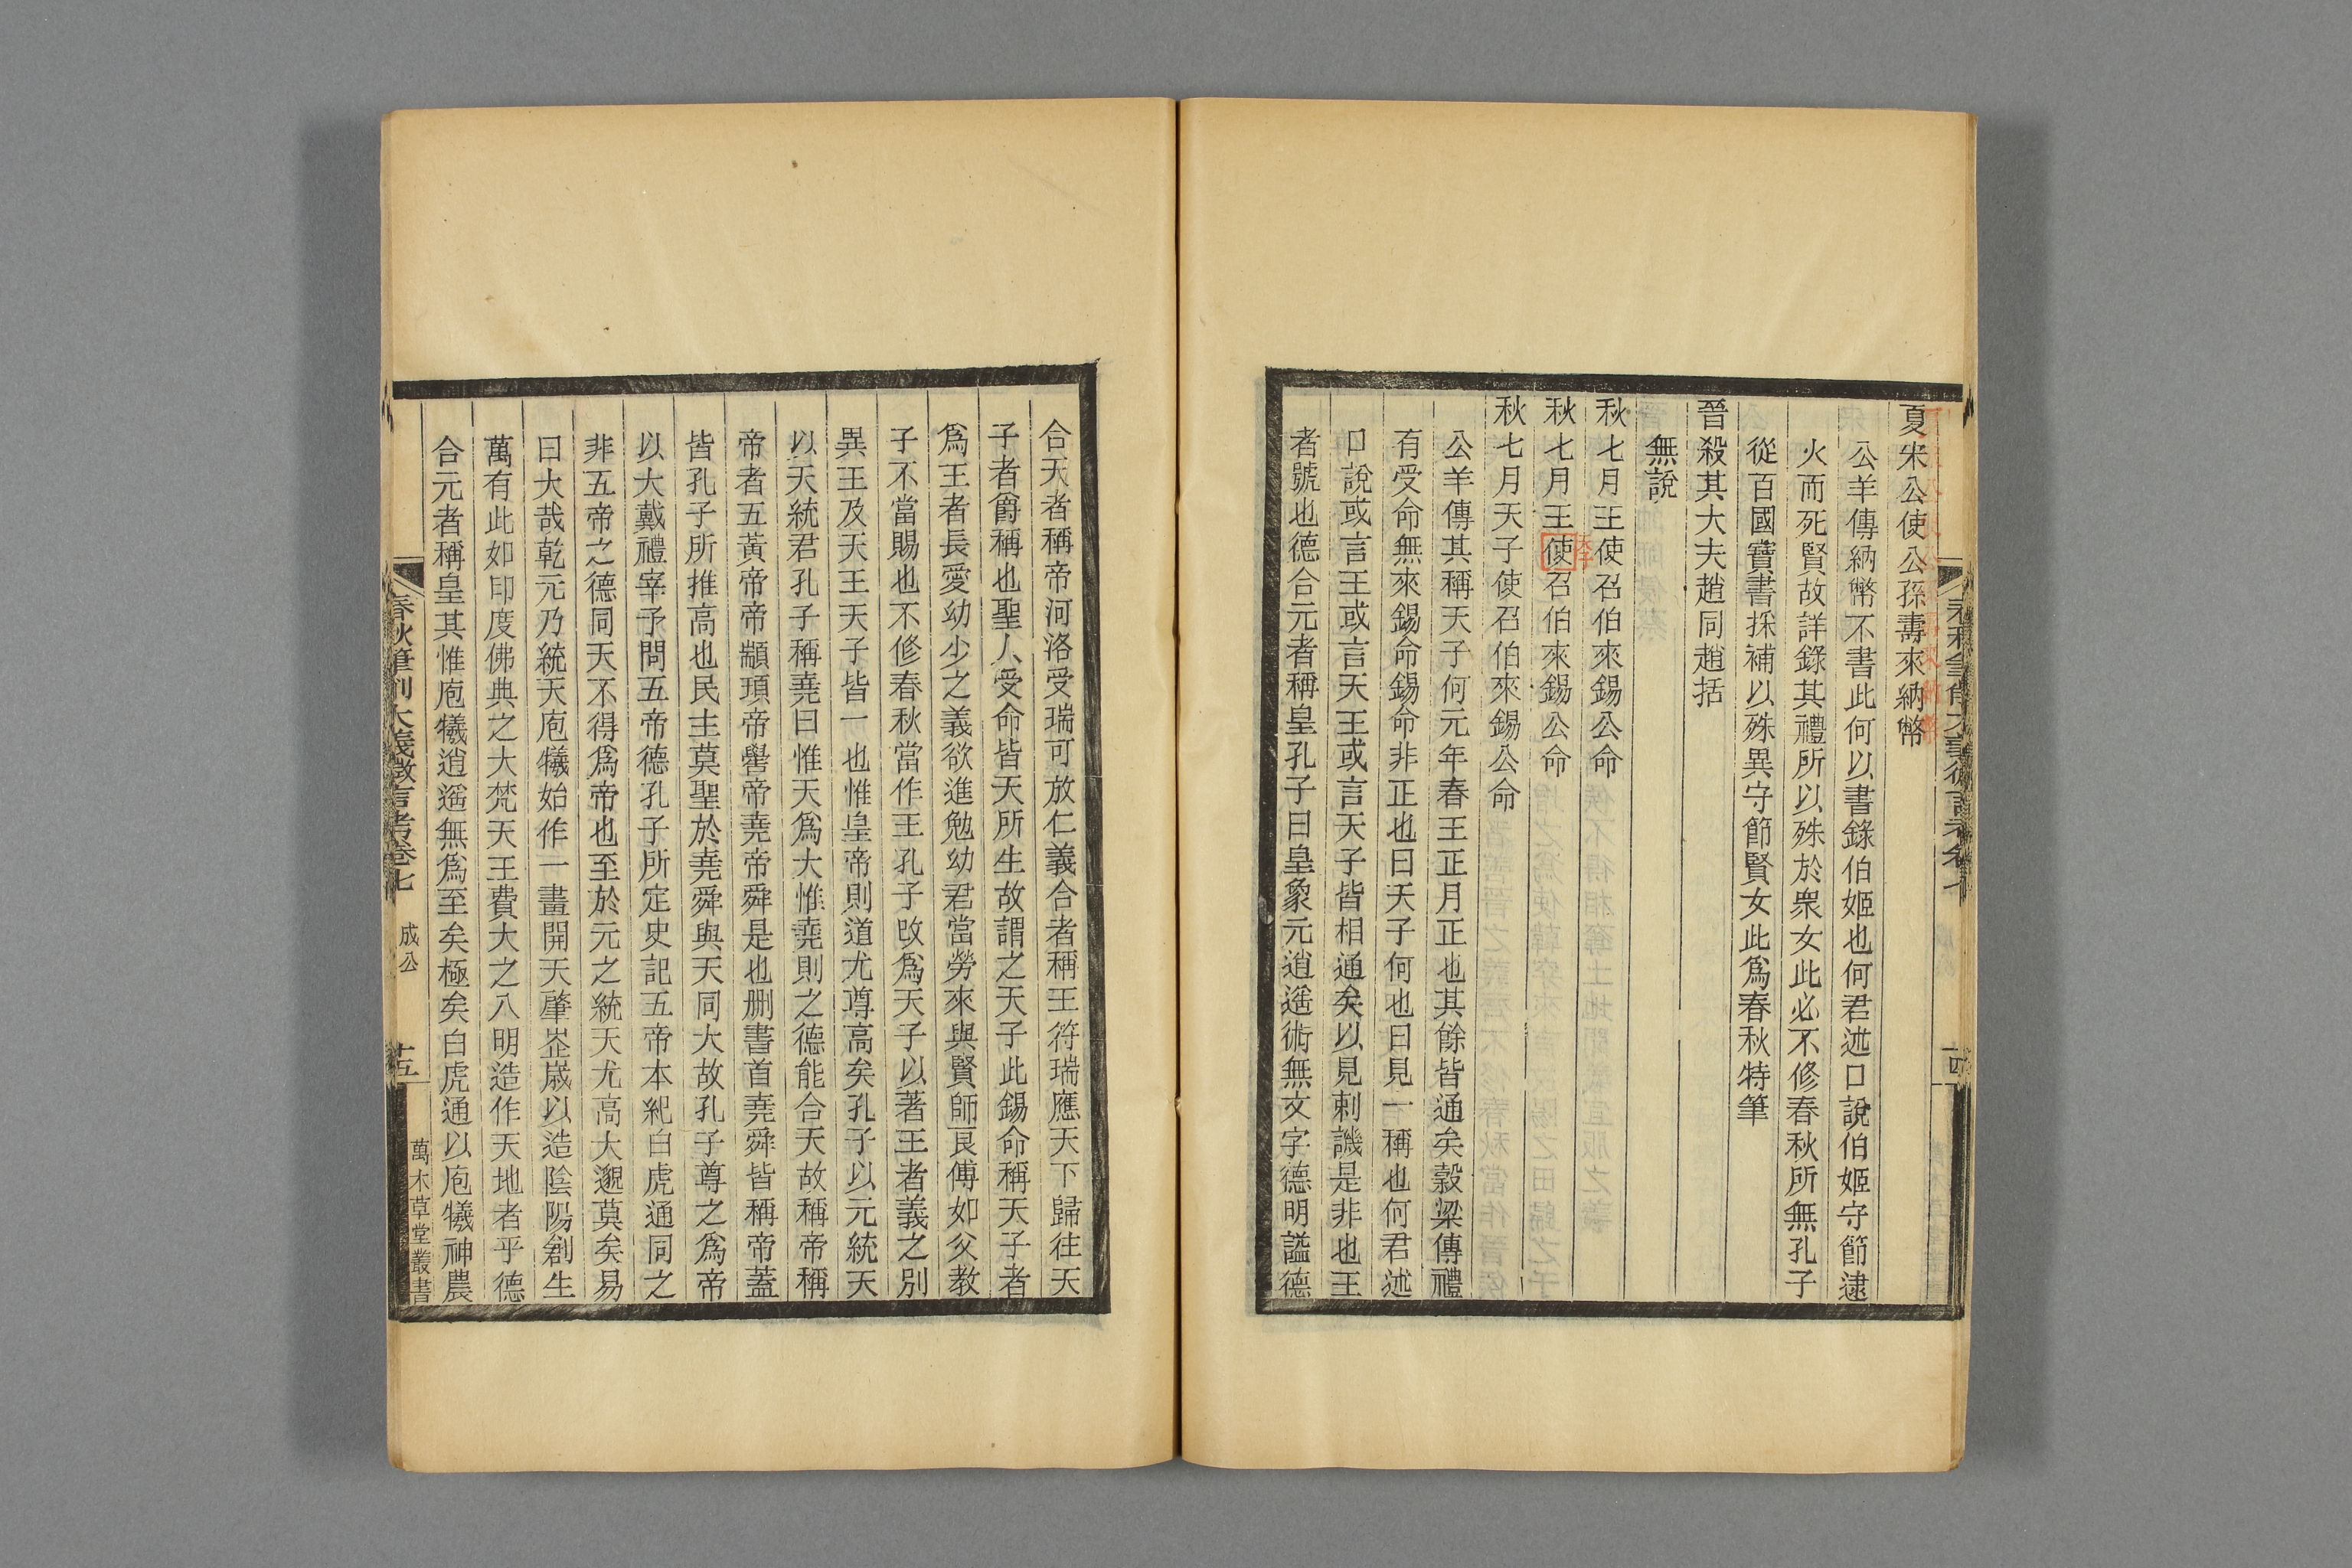 夏宋公使公孫壽來納幣
公羊傳納幣不書此何以書錄伯姬也何君述口說伯姬守節逮
火而死賢故詳錄其禮所以殊於衆女此必不修春秋所無孔子
從百國寶書採補以殊異守節賢女此爲春秋特筆
晉殺其大夫趙同趙括
無說
秋七月王使召伯來錫公命
秋七月王使召伯來錫公命
秋七月天子使召伯來錫公命
公羊傳其稱天子何元年春王正月正也其餘皆通矣穀梁傳禮
有受命無來錫命錫命非正也曰天子何也曰見一稱也何君述
口說或言王或言天王或言天子皆相通矣以見刺譏是非也王
者號也德合元者稱皇孔子曰皇象元逍遙術無文字德明謚德
合天者稱帝河洛受瑞可放仁義合者稱王符瑞應天下歸往天
子者爵稱也聖人受命皆天所生故謂之天子此錫命稱天子者
爲王者長愛幼少之義欲進勉幼君當勞來與賢師良傅如父教
子不當賜也不修春秋當作王孔子改爲天子以著王者義之別
異王及天王天子皆一也惟皇帝則道尤尊高矣孔子以元統天
以天統君孔子稱堯曰惟天爲大惟堯則之德能合天故稱帝稱
帝者五黃帝帝顓頊帝嚳帝堯帝舜是也刪書首堯舜皆稱帝蓋
皆孔子所推高也民主莫聖於堯舜與天同大故孔子尊之爲帝
以大戴禮宰予問五帝德孔子所定史記五帝本紀白虎通同之
非五帝之德同天不得爲帝也至於元之統天尤高大邈莫矣易
曰大哉乾元乃統天庖犧始作一畫開天肇丕歲以造陰陽剏生
萬有此如印度佛典之大梵天王費大之八明造作天地者乎德
合元者稱皇其惟庖犧逍遙無爲至矣極矣白虎通以庖犧神農
春秋筆削大義微言考卷七 成公 十五 萬木草堂叢書